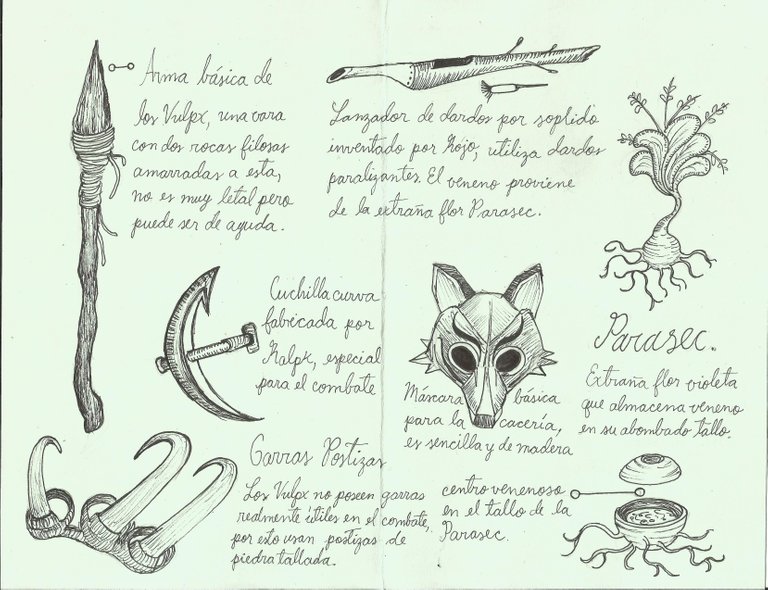 Arma básica de
los Vulpx, una vara
con dos rocas filosas
amarradas a esta,
no es muy letal pero
puede ser de ayuda.
Lanzador de dardos por soplido
inventado por Kojo, utiliza dardos
paralizantes. El veneno proviene
de la extraña flor Parasec.
Cuchilla curva
fabricada por
Kalpk, especial
para el combate
Máscara básica
para la cacería,
es sencilla y de madera
Parasec.
Extraña flor violeta
que almacena veneno
en su abombado tallo.
Garras Postizas
Los Vulpx no poseen garras
realmente útiles en el combate,
por esto usan postizas de
piedra tallada.
centro venenoso
en el tallo de la
Parasec.